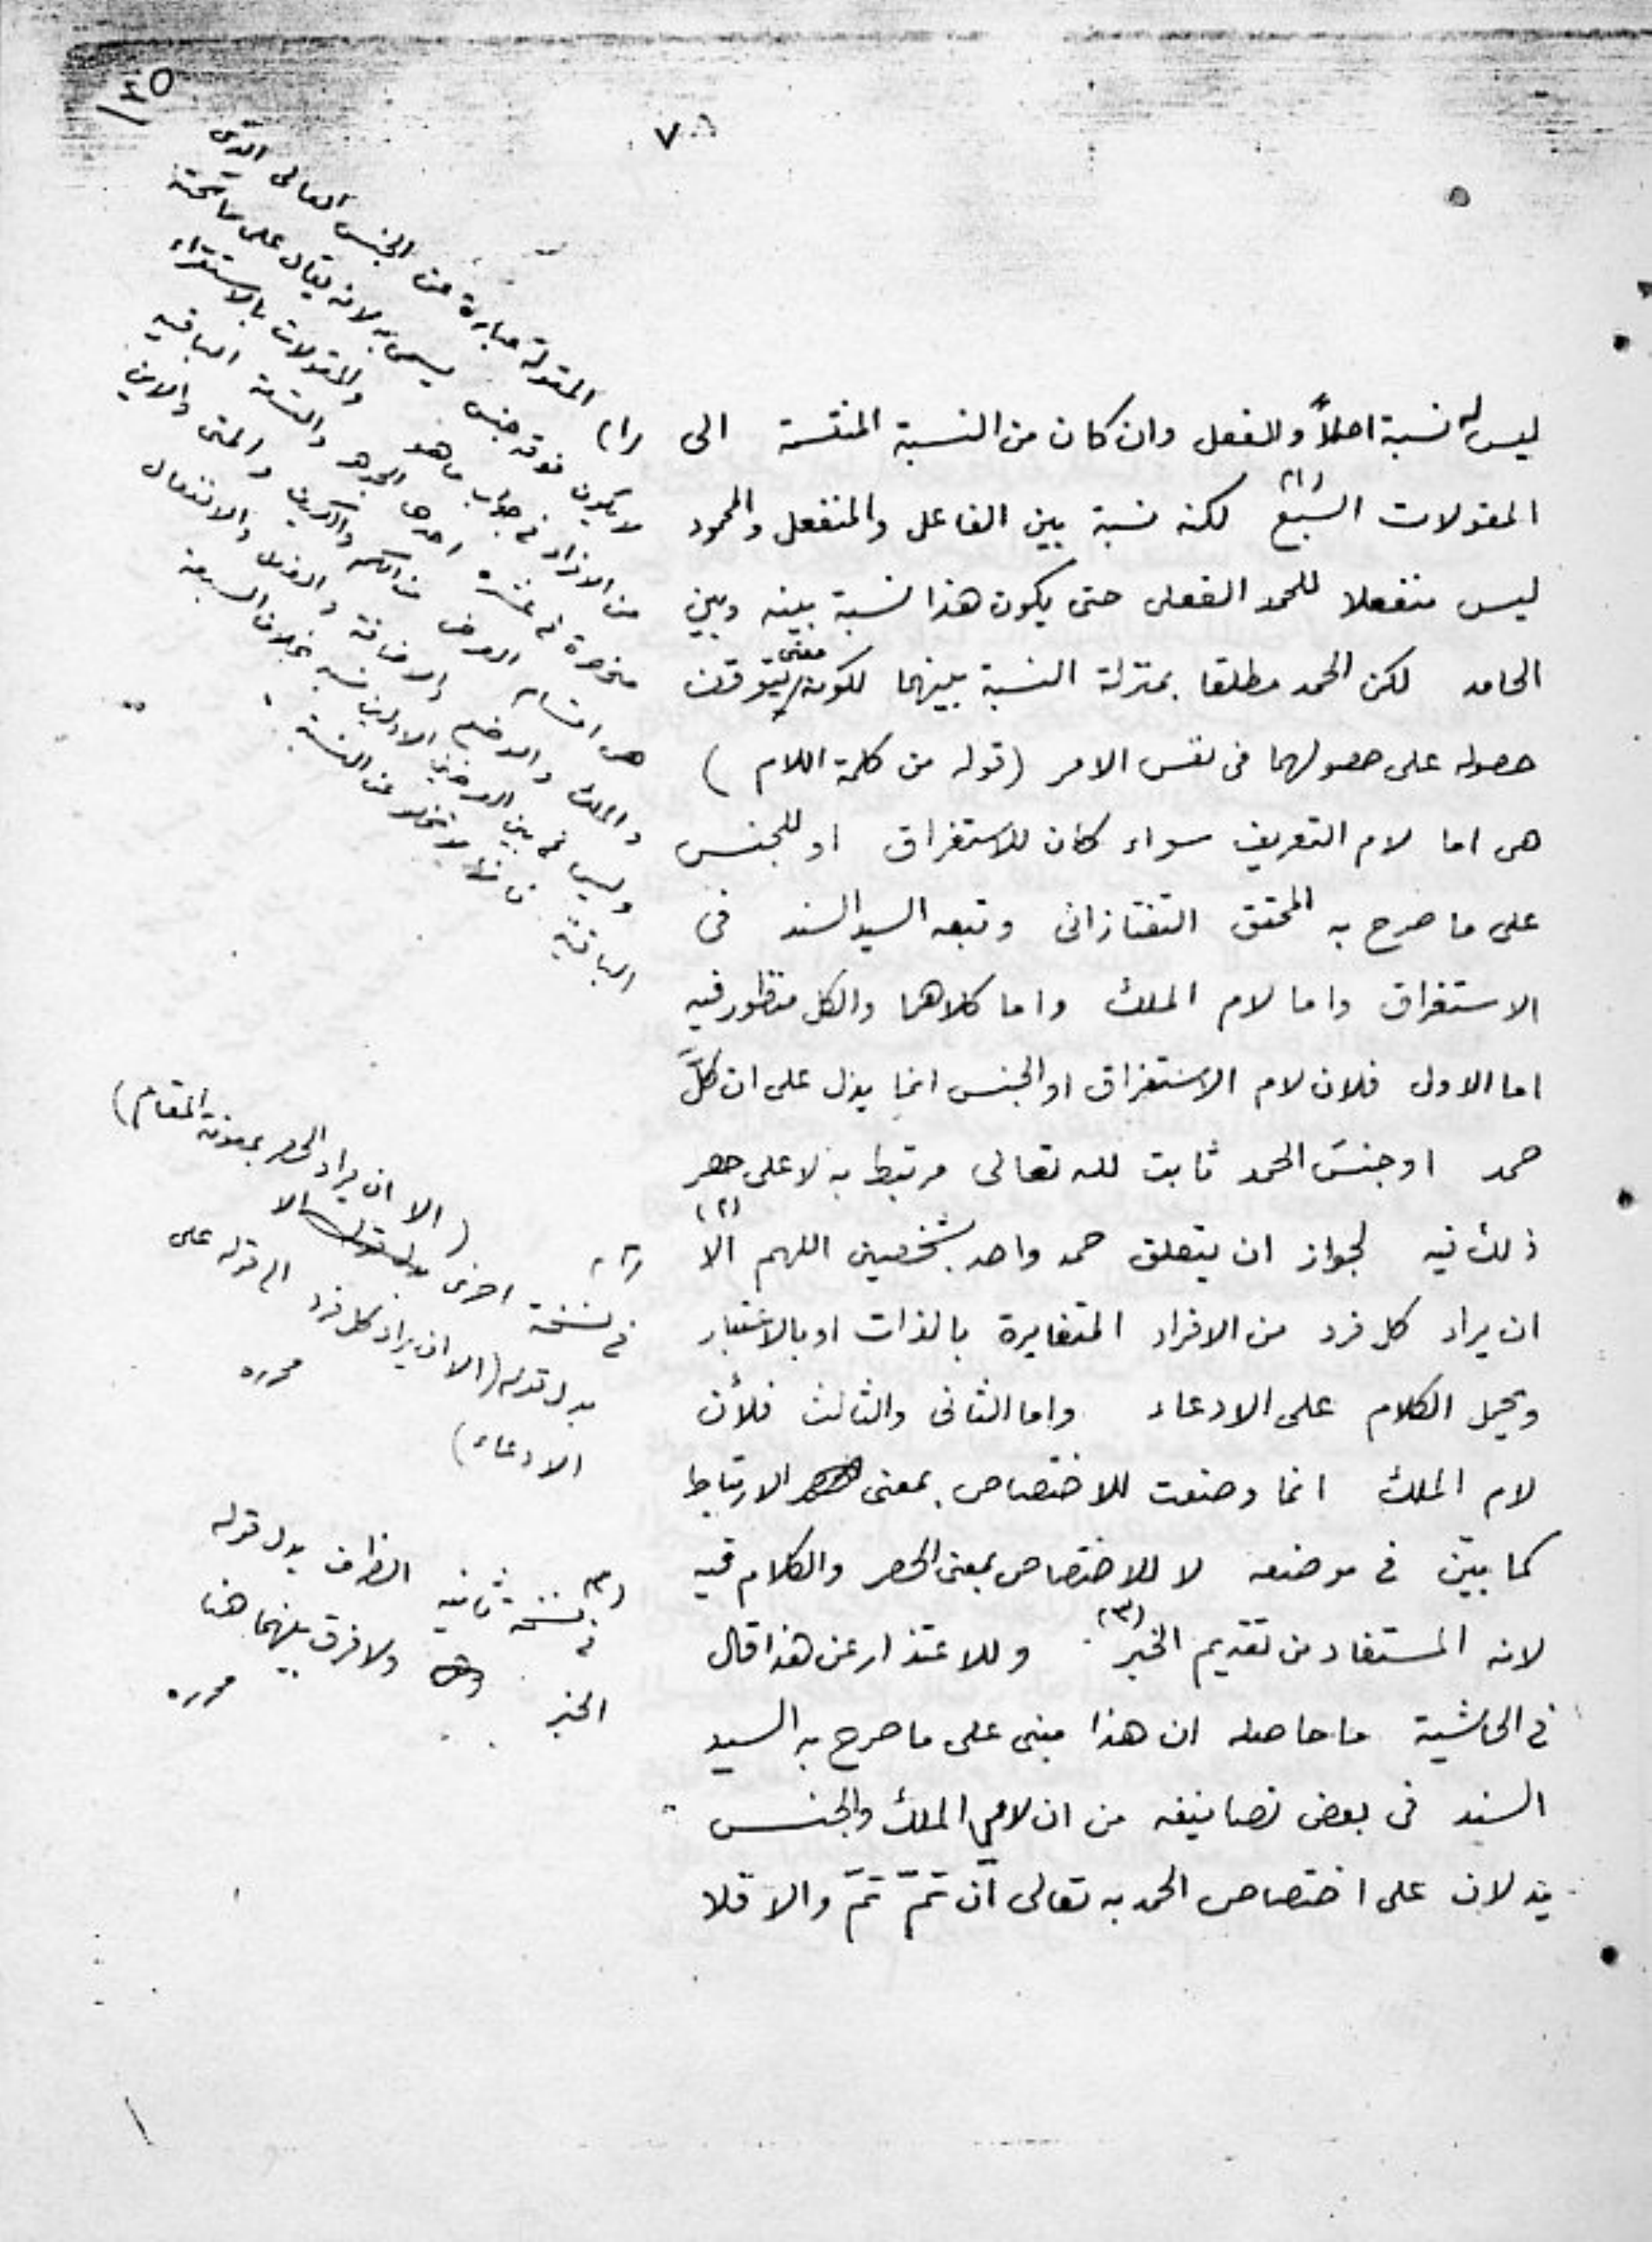 ٤٥
٧
ليس له نسبة اصلاً وللفعل وان كان من النسبة المنقسمة الى
المقولات السبع (١) لكنه نسبة بين الفاعل والمنفعل والمحمود
ليس منفعلا للحمد الفعلى حتى يكون هذا نسبة بينه وبين
الحامد لكن الحمد مطلقا بمنزلة النسبة بينهما لكونه معنى يتوقف
حصوله على حصولهما فى نفس الامر (قوله من كلمة اللام )
هى اما لام التعريف سواء كان للاستغراق او للجنس
على ما صرح به المحقق التفتازانى وتبعه السيد السند فى
الاستغراق واما لام الملك واما كلاهما والكل منظور فيه
اما الاول فلان لام الاستغراق او الجنس انما يدل على ان كلَّ
حمد او جنسَ الحمد ثابت لله تعالى مرتبط به لا على حصر
ذلك فيه لجواز ان يتعلق حمد واحد بشخصين اللهم الا (٢)
ان يراد كل فرد من الافراد المتغايرة بالذات او بالاعتبار
ويحمل الكلام على الادعاء واما الثانى والثالث فلأن
لام الملك انما وضعت للاختصاص بمعنى الارتباط
كما بيّن فى موضعه لا للاختصاص بمعنى الحصر والكلام فيه
لانه المستفاد من تقديم الخبر (٣) وللاعتذار عن هذا قال
فى الحاشية ما حاصله ان هذا مبنى على ما صرح به السيد
السند فى بعض تصانيفه من ان لامي الملك والجنس
يدلان على اختصاص الحمد به تعالى ان تمّ تمّ والا فلا
(١) المقولة عبارة عن الجنس العالى الذى
لا يكون فوقه جنس يسمى به لانه يقال على ما تحته
من الافراد فى جواب ما هو والمقولات بالاستقراء
منحصرة فى عشرة احدها الجوهر والتسعة الباقية
هى اقسام العرض من الكم والكيف والمتى والاين
والملك والوضع والاضافة والفعل والانفعال
وليس فى بين العرضين الاولين نسبة بخلاف السبعة
الباقية فانها لا تخلو عن النسبة
(٢)
فى نسخة اخرى (الا ان يراد الحصر بمعونة المقام)
بدل قوله (الا ان يراد كل فرد الى قوله على
الادعاء) محرره
(٣) فى نسخة ثانية الظرف بدل قوله
الخبر ولا فرق بينهما هنا
محرره